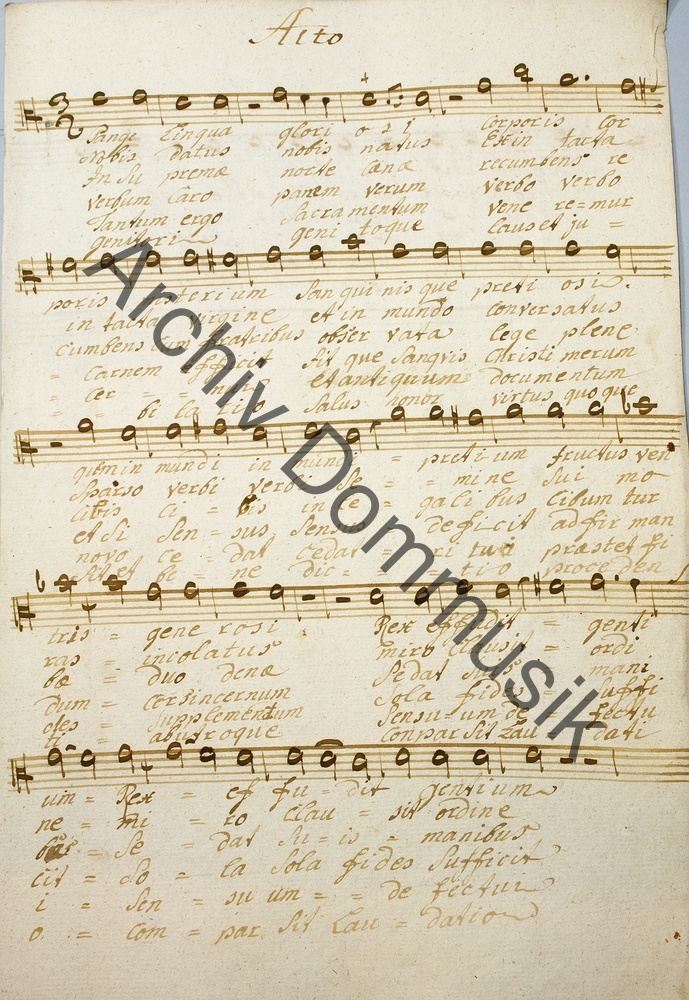 Alto
Pange Lingua glori o s i corporis cor
Nobis datus nobis natus Ex in tacta
In Su premæ nocte cænæ recumbens re
verbum Caro panem verum verbo verbo
Tantum ergo Sacramentum vene re=mur
genitori geni toque laus et ju =
poris misterium Sanqui nis que preti osi.
in tacta virgine et in mundo conversatus
cumbens cum fratribus obser vata lege plene
= carnem efficit fit que Sanguis Christi merum
= cer = = nui et antiquum documentum
= = bi la tio Salus honor virtus quoque
quem in mundi in mundi = pretium fructus ven
Sparso verbi verbi Se = = mine Sui mo
cibis ci = bis in le = gali bus Cibum tur
et Si Sen = sus Sensus = deficit ad fir man
novo ce = dat Cedat = ri tui præstet fi
Sit et be = ne dic = = = tio proce den
tris = gene rosi Rex effudit = genti
ras = incolatus miro Clausit = ordi
bæ = duo denæ Se dat Suis = mani
dum = cor sincerum Sola fides = Suffi
des = Supplementum Sensu-um de = fectu
ti = ab utroque compar Sit Lau = dati
um = Rex = ef fu = dit gentium
ne = mi = ro clau = sit ordine
bus = Se = dat Su=is = manibus
cit = So = la Sola fides Sufficit
i = Sen = su um = = de fectui
o = com = par Sit Lau = datio
Archiv Dommusik